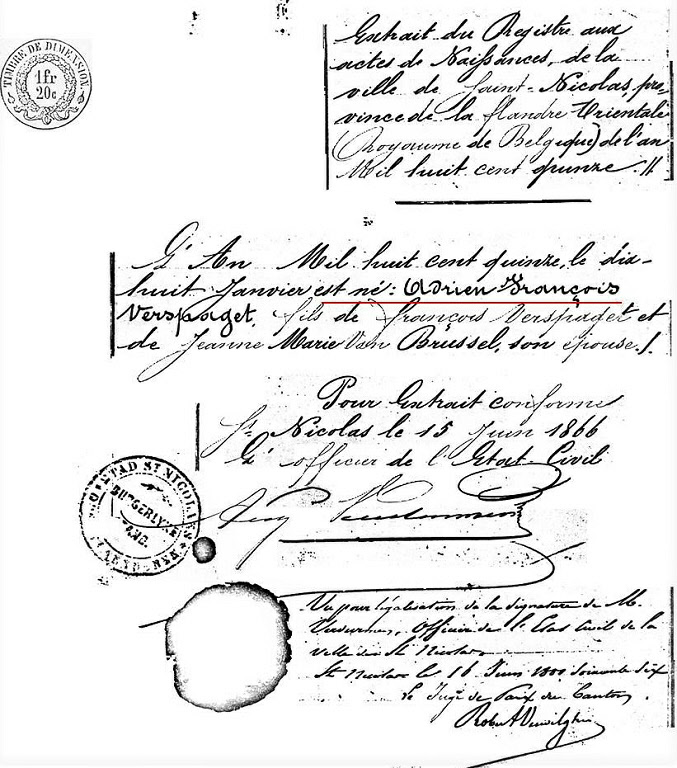 TIMBRE DE DIMENSION
1fr
20c
Extrait du Registre aux
actes de Naissances, de la
ville de Saint-Nicolas, pro-
vince de la flandre Orientale
(Royaume de Belgique) de l'an
Mil huit cent quinze.//
L'An Mil huit cent quinze, le dix-
huit Janvier est né: Adrien François
Verspaget, fils de François Verspaget et
de Jeanne Marie Van Brussel, son épouse./.
Pour Extrait conforme
St. Nicolas le 15 Juin 1866
L'officier de l'Etat Civil
STAD ST NICOLAES
BURGERLYKE
Vu pour légalisation de la signature de M.
Verdurmen, Officier de l'Etat Civil de la
ville de St Nicolas
St Nicolas le 16 Juin 1800 soixante six
Le Juge de Paix du Canton,